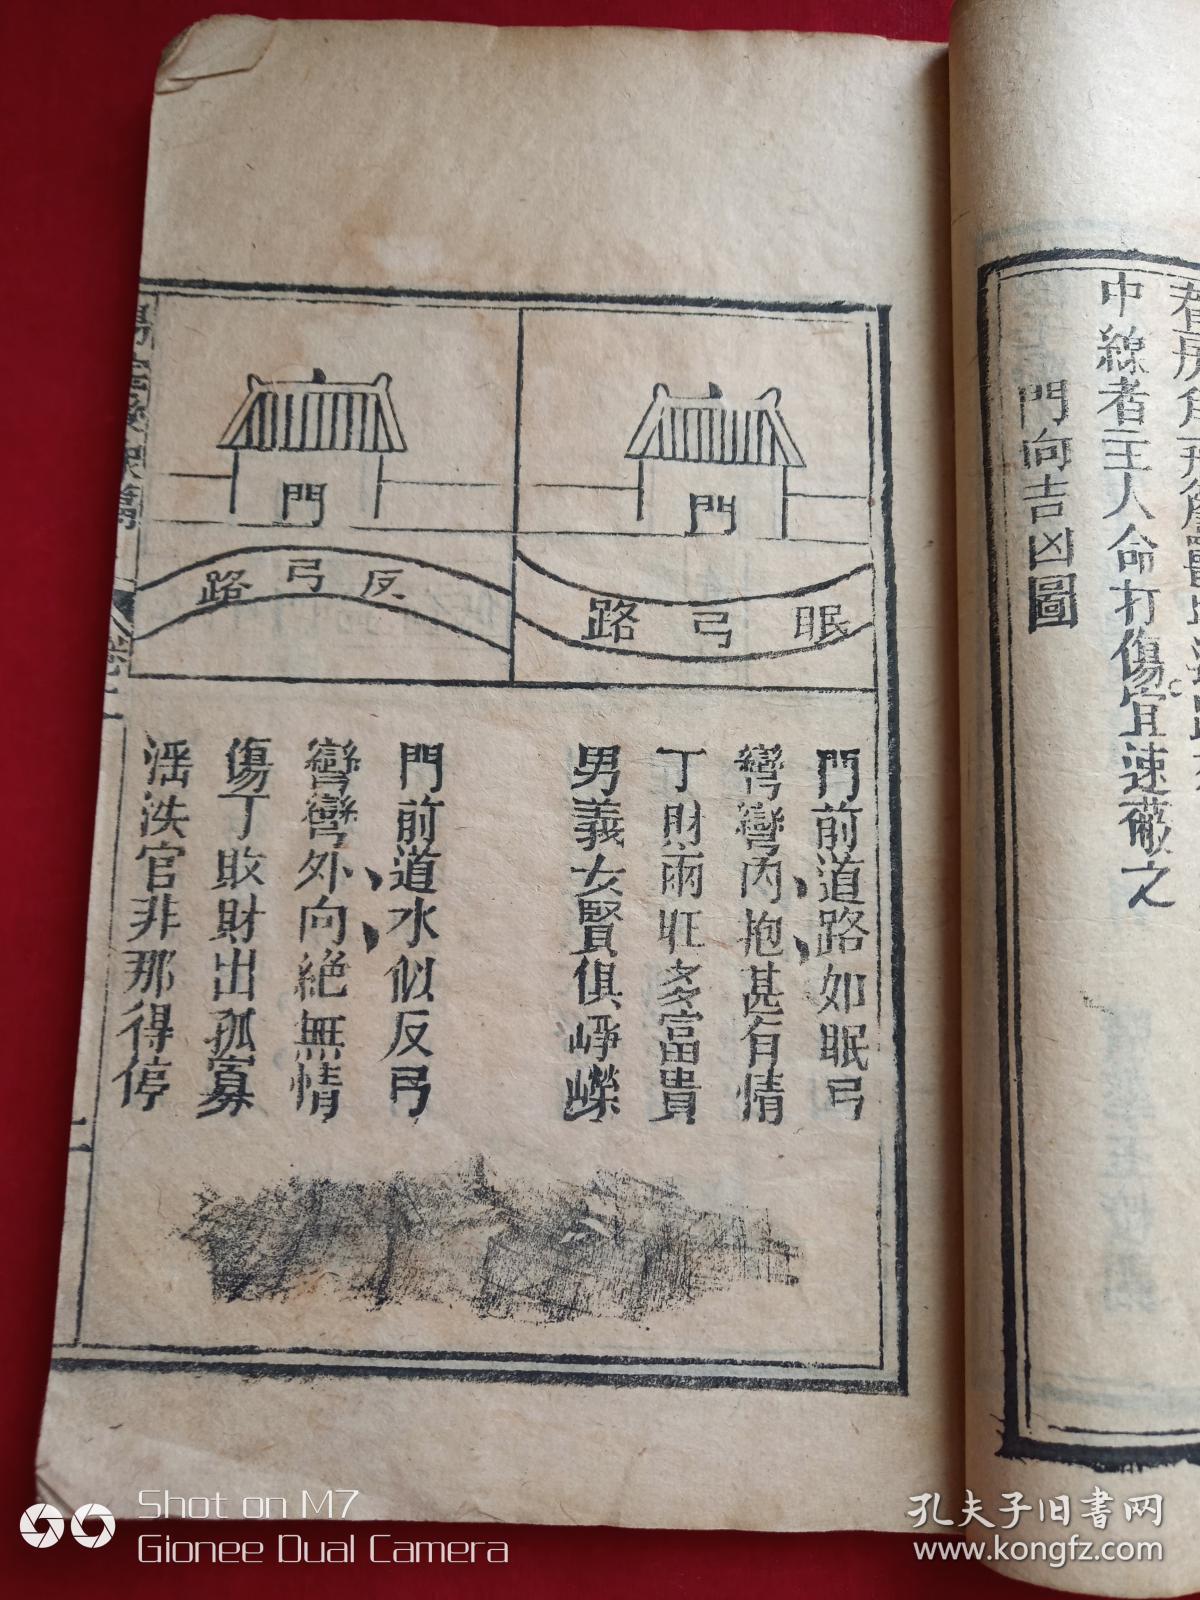 中線者主人命打傷宜速蔽之
門向吉凶圖
門
眠弓路
門
反弓路
門前道路如眠弓
彎彎內抱甚有情
丁財兩旺多富貴
男義女賢俱崢嶸
門前道水似反弓
彎彎外向絕無情
傷丁敗財出孤寡
淫泆官非那得停
Shot on M7
Gionee Dual Camera
孔夫子旧书网
www.kongfz.com